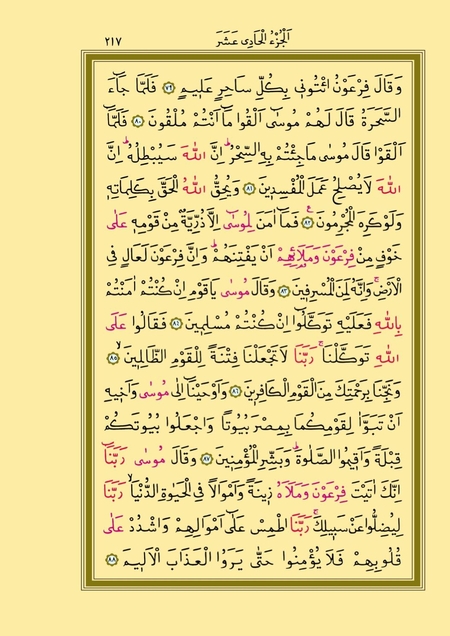 اَلْجُزْءُ الْحَادِى عَشَرَ ٢١٧
وَقَالَ فِرْعَوْنُ ائْتُونٖى بِكُلِّ سَاحِرٍ عَلٖيمٍ ﴿٧٩﴾ فَلَمَّا جَٓاءَ
السَّحَرَةُ قَالَ لَهُمْ مُوسٰٓى اَلْقُوا مَٓا اَنْتُمْ مُلْقُونَ ﴿٨٠﴾ فَلَمَّٓا
اَلْقَوْا قَالَ مُوسٰى مَا جِئْتُمْ بِهِ السِّحْرُؕ اِنَّ اللّٰهَ سَيُبْطِلُهُؕ اِنَّ
اللّٰهَ لَا يُصْلِحُ عَمَلَ الْمُفْسِدٖينَ ﴿٨١﴾ وَيُحِقُّ اللّٰهُ الْحَقَّ بِكَلِمَاتِهٖ
وَلَوْ كَرِهَ الْمُجْرِمُونَ ﴿٨٢﴾ فَمَٓا اٰمَنَ لِمُوسٰٓى اِلَّا ذُرِّيَّةٌ مِنْ قَوْمِهٖ عَلٰى
خَوْفٍ مِنْ فِرْعَوْنَ وَمَلَا۬ئِهِمْ اَنْ يَفْتِنَهُمْؕ وَاِنَّ فِرْعَوْنَ لَعَالٍ فِى
الْاَرْضِۚ وَاِنَّهُ لَمِنَ الْمُسْرِفٖينَ ﴿٨٣﴾ وَقَالَ مُوسٰى يَا قَوْمِ اِنْ كُنْتُمْ اٰمَنْتُمْ
بِاللّٰهِ فَعَلَيْهِ تَوَكَّلُٓوا اِنْ كُنْتُمْ مُسْلِمٖينَ ﴿٨٤﴾ فَقَالُوا عَلَى
اللّٰهِ تَوَكَّلْنَاۚ رَبَّنَا لَا تَجْعَلْنَا فِتْنَةً لِلْقَوْمِ الظَّالِمٖينَۙ ﴿٨٥﴾
وَنَجِّنَا بِرَحْمَتِكَ مِنَ الْقَوْمِ الْكَافِرٖينَ ﴿٨٦﴾ وَاَوْحَيْنَٓا اِلٰى مُوسٰى وَاَخٖيهِ
اَنْ تَبَوَّاٰ لِقَوْمِكُمَا بِمِصْرَ بُيُوتًا وَاجْعَلُوا بُيُوتَكُمْ
قِبْلَةً وَاَقٖيمُوا الصَّلٰوةَؕ وَبَشِّرِ الْمُؤْمِنٖينَ ﴿٨٧﴾ وَقَالَ مُوسٰى رَبَّنَٓا
اِنَّكَ اٰتَيْتَ فِرْعَوْنَ وَمَلَاَهُ زٖينَةً وَاَمْوَالًا فِى الْحَيٰوةِ الدُّنْيَاۙ رَبَّنَا
لِيُضِلُّوا عَنْ سَبٖيلِكَۚ رَبَّنَا اطْمِسْ عَلٰٓى اَمْوَالِهِمْ وَاشْدُدْ عَلٰى
قُلُوبِهِمْ فَلَا يُؤْمِنُوا حَتّٰى يَرَوُا الْعَذَابَ الْاَلٖيمَ ﴿٨٨﴾